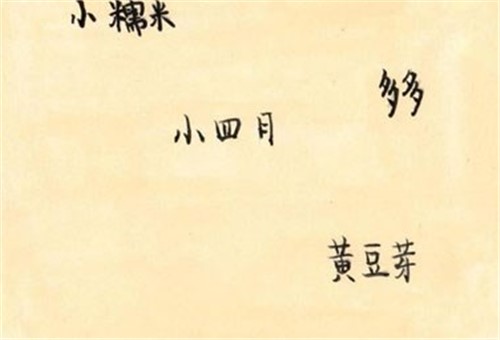 小糯米
多多
小四月
黄豆芽